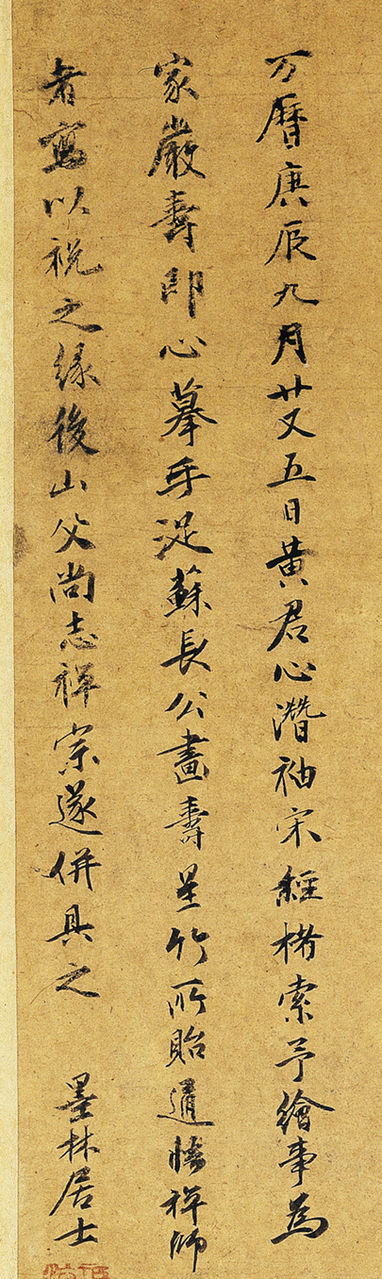 万曆庚辰九月廿又五日黃君心潛袖宋經楮索予繪事為
家嚴壽即心摹手蘇長公畫壽星竹所貽禪師
者寫以祝之緣後山父尚志禪宗遂併具之
墨林居士